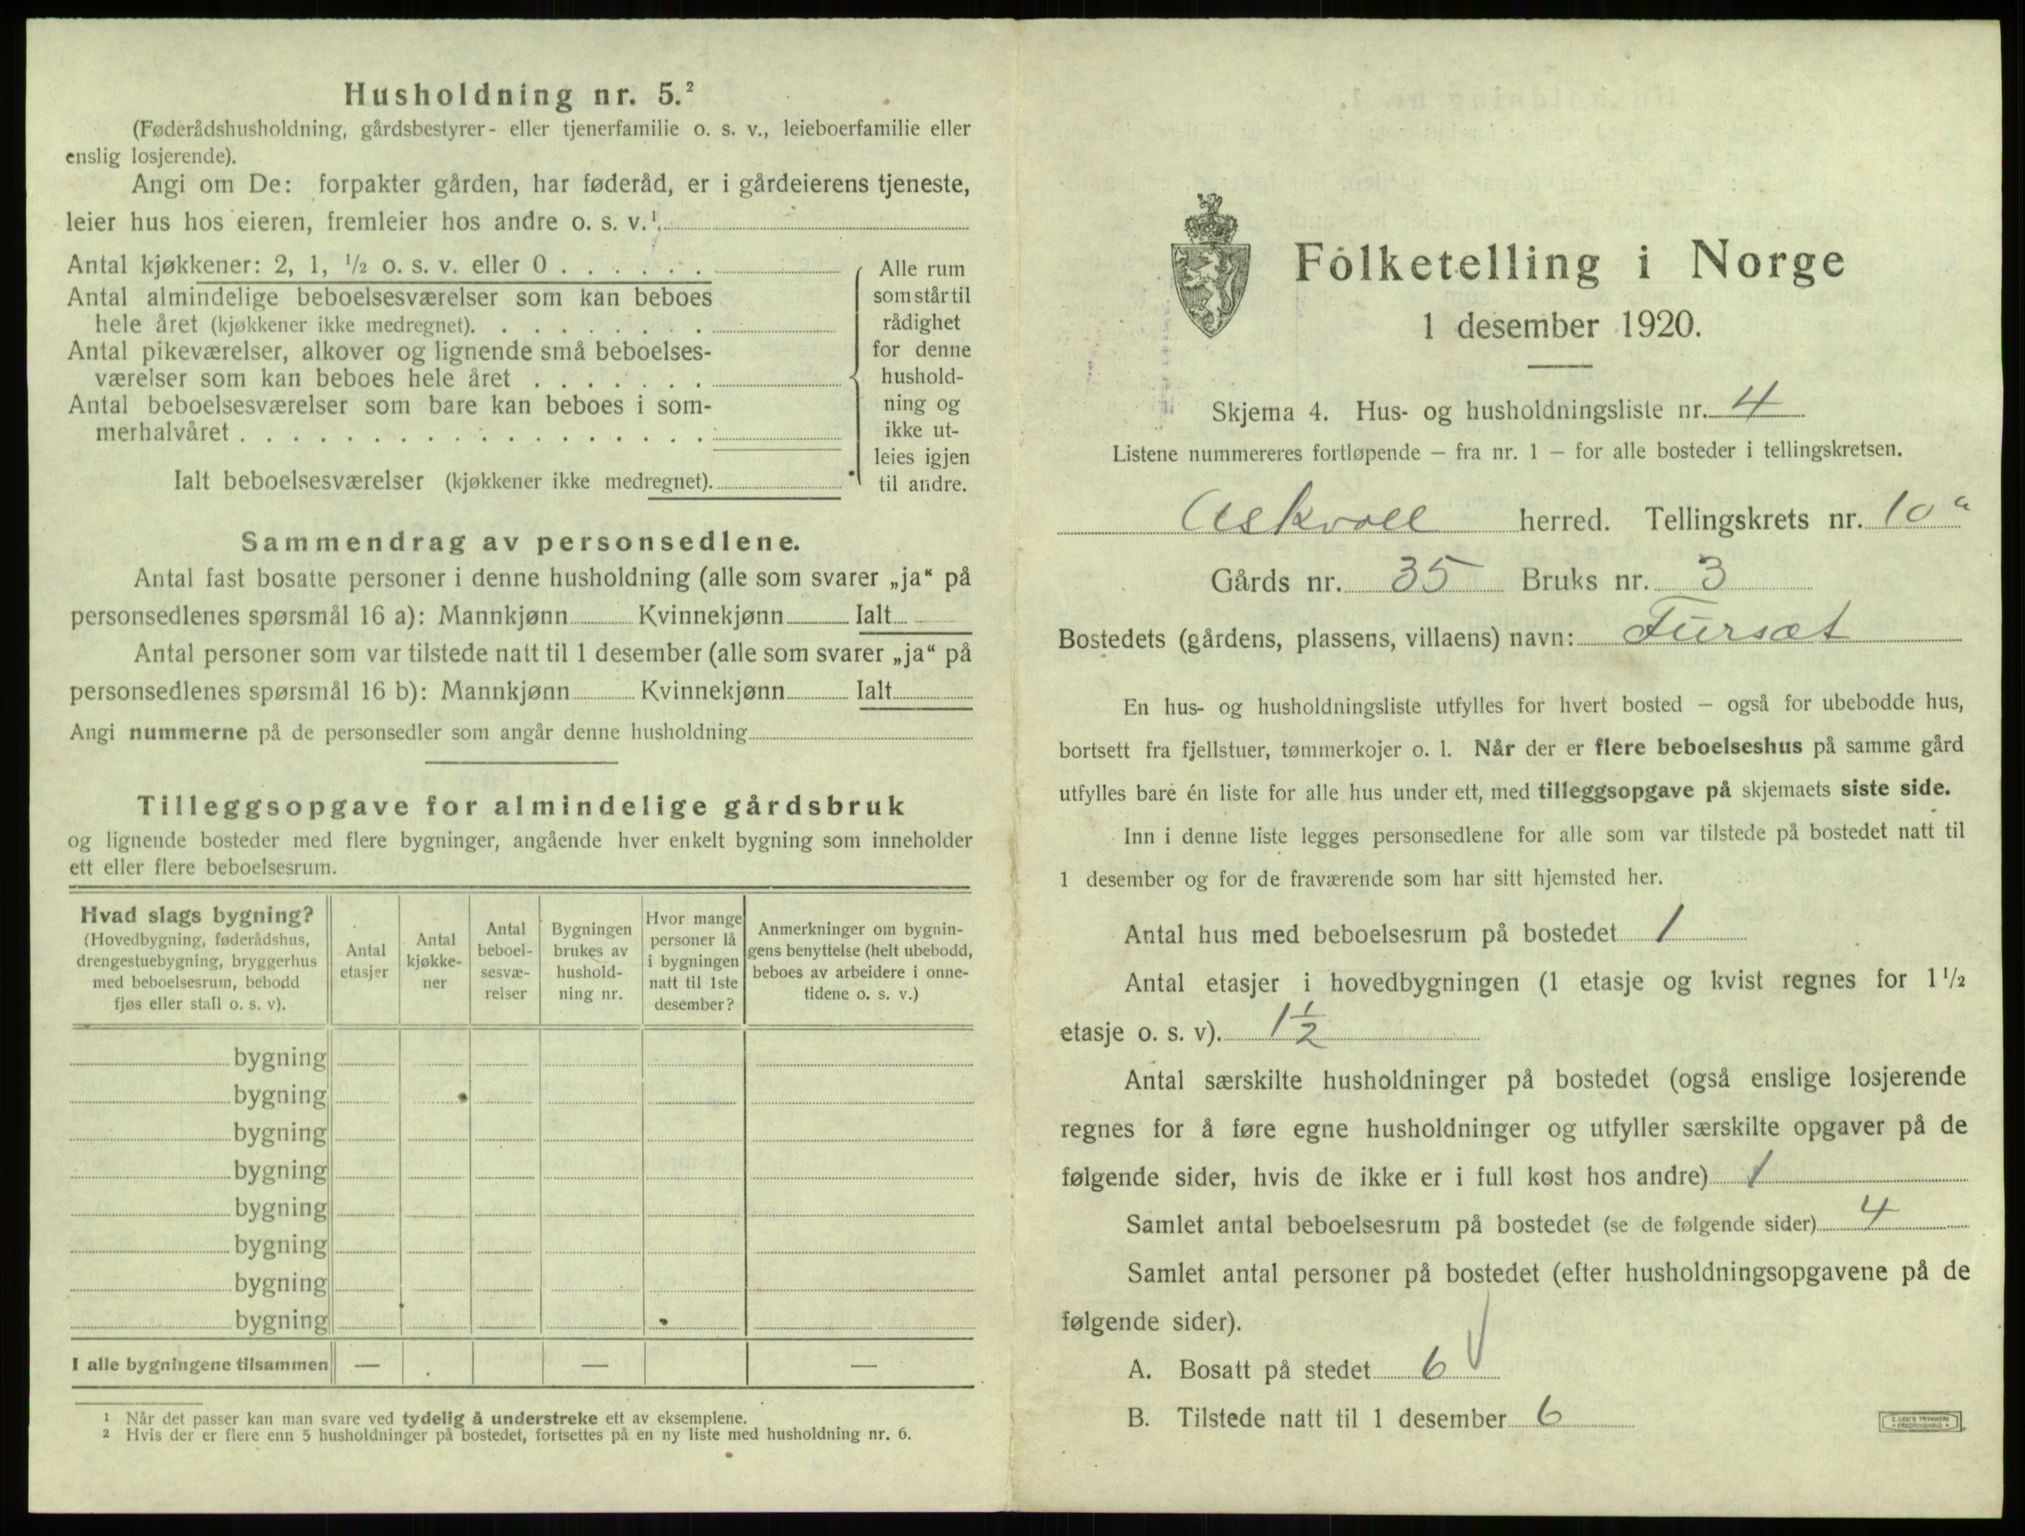 Husholdning nr. 5.²
(Føderådshusholdning, gårdsbestyrer- eller tjenerfamilie o. s. v., leieboerfamilie eller
enslig losjerende).
Angi om De: forpakter gården, har føderåd, er i gårdeierens tjeneste,
leier hus hos eieren, fremleier hos andre o. s. v.¹
Antal kjøkkener: 2, 1, ½ o. s. v. eller 0 . . . . . .
Antal almindelige beboelsesværelser som kan beboes
hele året (kjøkkener ikke medregnet). . . . . . . . .
Antal pikeværelser, alkover og lignende små beboelses-
værelser som kan beboes hele året . . . . . . .
Antal beboelsesværelser som bare kan beboes i som-
merhalvåret . . . . . . . . . . . . . . . . . .
Ialt beboelsesværelser (kjøkkener ikke medregnet).
Alle rum
som står til
rådighet
for denne
hushold-
ning og
ikke ut-
leies igjen
til andre.
Sammendrag av personsedlene.
Antal fast bosatte personer i denne husholdning (alle som svarer „ja“ på
personsedlenes spørsmål 16 a): Mannkjønn Kvinnekjønn Ialt
Antal personer som var tilstede natt til 1 desember (alle som svarer „ja“ på
personsedlenes spørsmål 16 b): Mannkjønn Kvinnekjønn Ialt
Angi nummerne på de personsedler som angår denne husholdning
Tilleggsopgave for almindelige gårdsbruk
og lignende bosteder med flere bygninger, angående hver enkelt bygning som inneholder
ett eller flere beboelsesrum.
Hvad slags bygning?
(Hovedbygning, føderådshus,
drengestuebygning, bryggerhus
med beboelsesrum, bebodd
fjøs eller stall o. s. v).
Antal
etasjer
Antal
kjøkke-
ner
Antal
beboel-
sesvæ-
relser
Bygningen
brukes av
hushold-
ning nr.
Hvor mange
personer lå
i bygningen
natt til 1ste
desember?
Anmerkninger om bygnin-
gens benyttelse (helt ubebodd,
beboes av arbeidere i onne-
tidene o. s. v.)
bygning
bygning
bygning
bygning
bygning
bygning
bygning
bygning
I alle bygningene tilsammen — — —
1 Når det passer kan man svare ved tydelig å understreke ett av eksemplene.
2 Hvis der er flere enn 5 husholdninger på bostedet, fortsettes på en ny liste med husholdning nr. 6.
Folketelling i Norge
1 desember 1920.
Skjema 4. Hus- og husholdningsliste nr. 4
Listene nummereres fortløpende – fra nr. 1 – for alle bosteder i tellingskretsen.
Askvoll herred. Tellingskrets nr. 10 a
Gårds nr. 35 Bruks nr. 3
Bostedets (gårdens, plassens, villaens) navn: Fursæt
En hus- og husholdningsliste utfylles for hvert bosted – også for ubebodde hus,
bortsett fra fjellstuer, tømmerkojer o. l. Når der er flere beboelseshus på samme gård
utfylles bare én liste for alle hus under ett, med tilleggsopgave på skjemaets siste side.
Inn i denne liste legges personsedlene for alle som var tilstede på bostedet natt til
1 desember og for de fraværende som har sitt hjemsted her.
Antal hus med beboelsesrum på bostedet 1
Antal etasjer i hovedbygningen (1 etasje og kvist regnes for 1½
etasje o. s. v). 1½
Antal særskilte husholdninger på bostedet (også enslige losjerende
regnes for å føre egne husholdninger og utfyller særskilte opgaver på de
følgende sider, hvis de ikke er i full kost hos andre) 1
Samlet antal beboelsesrum på bostedet (se de følgende sider) 4
Samlet antal personer på bostedet (efter husholdningsopgavene på de
følgende sider).
A. Bosatt på stedet 6
B. Tilstede natt til 1 desember 6